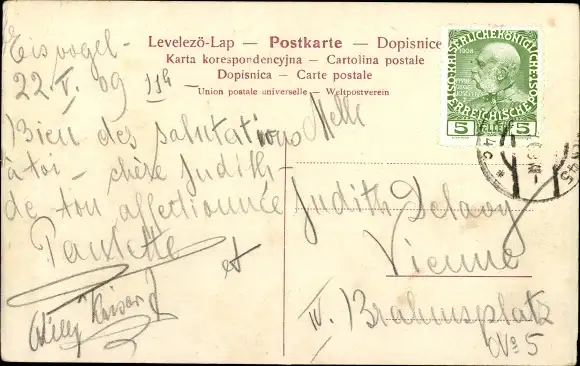 Eisvogel-
22.V.09 11h-
Bien des salutations
à toi - chère Judith
de ton affectionnée
Paulette
et
Levelezö-Lap — Postkarte — Dopisnice
Karta korespondencyjna — Cartolina postale
Dopisnica — Carte postale
Union postale universelle — Weltpostverein
Melle
Judith Delaroy
Vienne
IV. Brahmsplatz
No 5
1908
5 HELLER 5
45